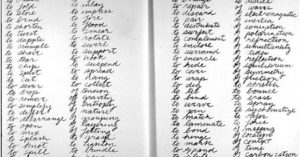 to fold
to store
to bend
to shorten
to twist
to crumple
to shave
to tear
to chip
to split
to cut
to sever
to drop
to remove
to simplify
to differ
to disarrange
to open
to mix
to splash
to knot
to spill
to inlay
to impress
to fire
to flood
to smear
to rotate
to swirl
to support
to hook
to suspend
to spread
to hang
to collect
of tension
of gravity
of entropy
of nature
of grouping
of layering
of felting
to grasp
to tighten
to bundle
to repair
to discard
to pair
to distribute
to surfeit
to scatter
to modulate
to surround
to encircle
to hide
to cover
to wrap
to dig
to tie
to bind
to weave
to join
to match
to laminate
to bond
to hinge
to mark
to expand
of waves
of electromagnetic
of inertia
of ionization
of polarization
of refraction
of simultaneity
of tides
of reflection
of equilibrium
of symmetry
of friction
to stretch
to bounce
to erase
to spray
to systematize
to refer
to force
of mapping
of location
of context
of time
of carbonization